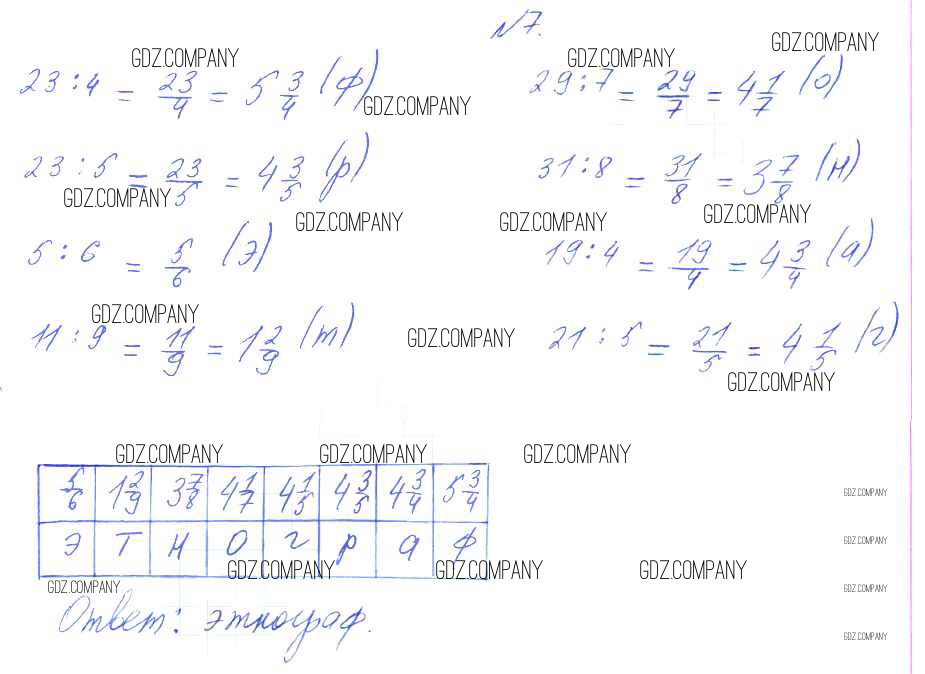 №7.
GDZ.COMPANY GDZ.COMPANY GDZ.COMPANY
23 : 4 = 23/4 = 5 3/4 (ф) 29 : 7 = 29/7 = 4 1/7 (о)
GDZ.COMPANY
23 : 5 = 23/5 = 4 3/5 (р) 31 : 8 = 31/8 = 3 7/8 (н)
GDZ.COMPANY GDZ.COMPANY GDZ.COMPANY GDZ.COMPANY
5 : 6 = 5/6 (э) 19 : 4 = 19/4 = 4 3/4 (а)
GDZ.COMPANY GDZ.COMPANY
11 : 9 = 11/9 = 1 2/9 (т) 21 : 5 = 21/5 = 4 1/5 (г)
GDZ.COMPANY
GDZ.COMPANY GDZ.COMPANY GDZ.COMPANY
5/6 1 2/9 3 7/8 4 1/7 4 1/5 4 3/5 4 3/4 5 3/4
GDZ.COMPANY
Э Т Н О Г Р А Ф
GDZ.COMPANY
GDZ.COMPANY GDZ.COMPANY GDZ.COMPANY
GDZ.COMPANY GDZ.COMPANY
Ответ: этнограф.
GDZ.COMPANY